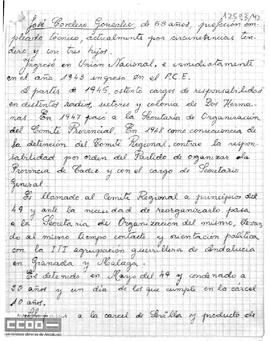 17533/10
José Cordero González de 68 años, profesión em-
pleado técnico, actualmente por circunstancias ten-
dero y con tres hijos.
Ingresó en Unión Nacional, e inmediatamente
en el año 1943 ingreso en el P.C.E.
A partir de 1945, ostento cargos de responsabilidad
en distintos radios, sectores y colonia de Dos Herma-
nas. En 1947 paso a la Secretaría de Organización
del Comité Provincial. En 1948 como consecuencia de
la detención del Comité Regional, contrae la respon-
sabilidad por orden del Partido de organizar la
Provincia de Cadiz y con el cargo de Secretario
General.
Es llamado al Comité Regional a principios del
49 y ante la necesidad de reorganizarlo pasa
a la Secretaría de Organización del mismo, llevan-
do al mismo tiempo contacto y orientación política
con la III agrupación guerrillera de Andalucía
en Granada y Malaga.
Es detenido en Mayo del 49 y condenado a
30 años y un día de los que cumple en la carcel
10 años.
a la carcel de Sevilla y producto de
CCOO